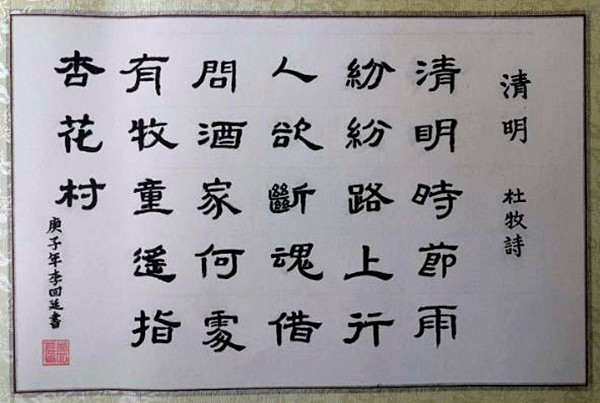 清明 杜牧詩
清明時節雨
紛紛路上行
人欲斷魂借
問酒家何處
有牧童遙指
杏花村
庚子年李回延書